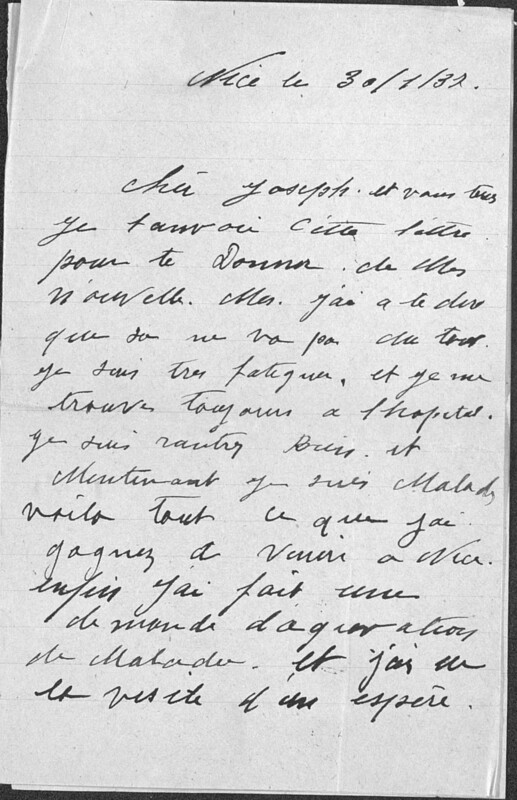 Nice le 30/1/32.
chér Joseph. et vous tous
je tanvoie cette lettre
pour te Donner. de Mes
nouvelle. Mes. j'ai a te dire
que sa ne va pas du tout.
je suis tres fatiguer. et je me
trouve toujours a lhopital.
je suis rantrez Bien. et
Mintenant je suis Malade
voila tout ce que j'ai
gagnez de venir a Nice.
enfin j'ai fait une
demande dagravation
de Maladie. et j'ai eu
la visite d'un espére.